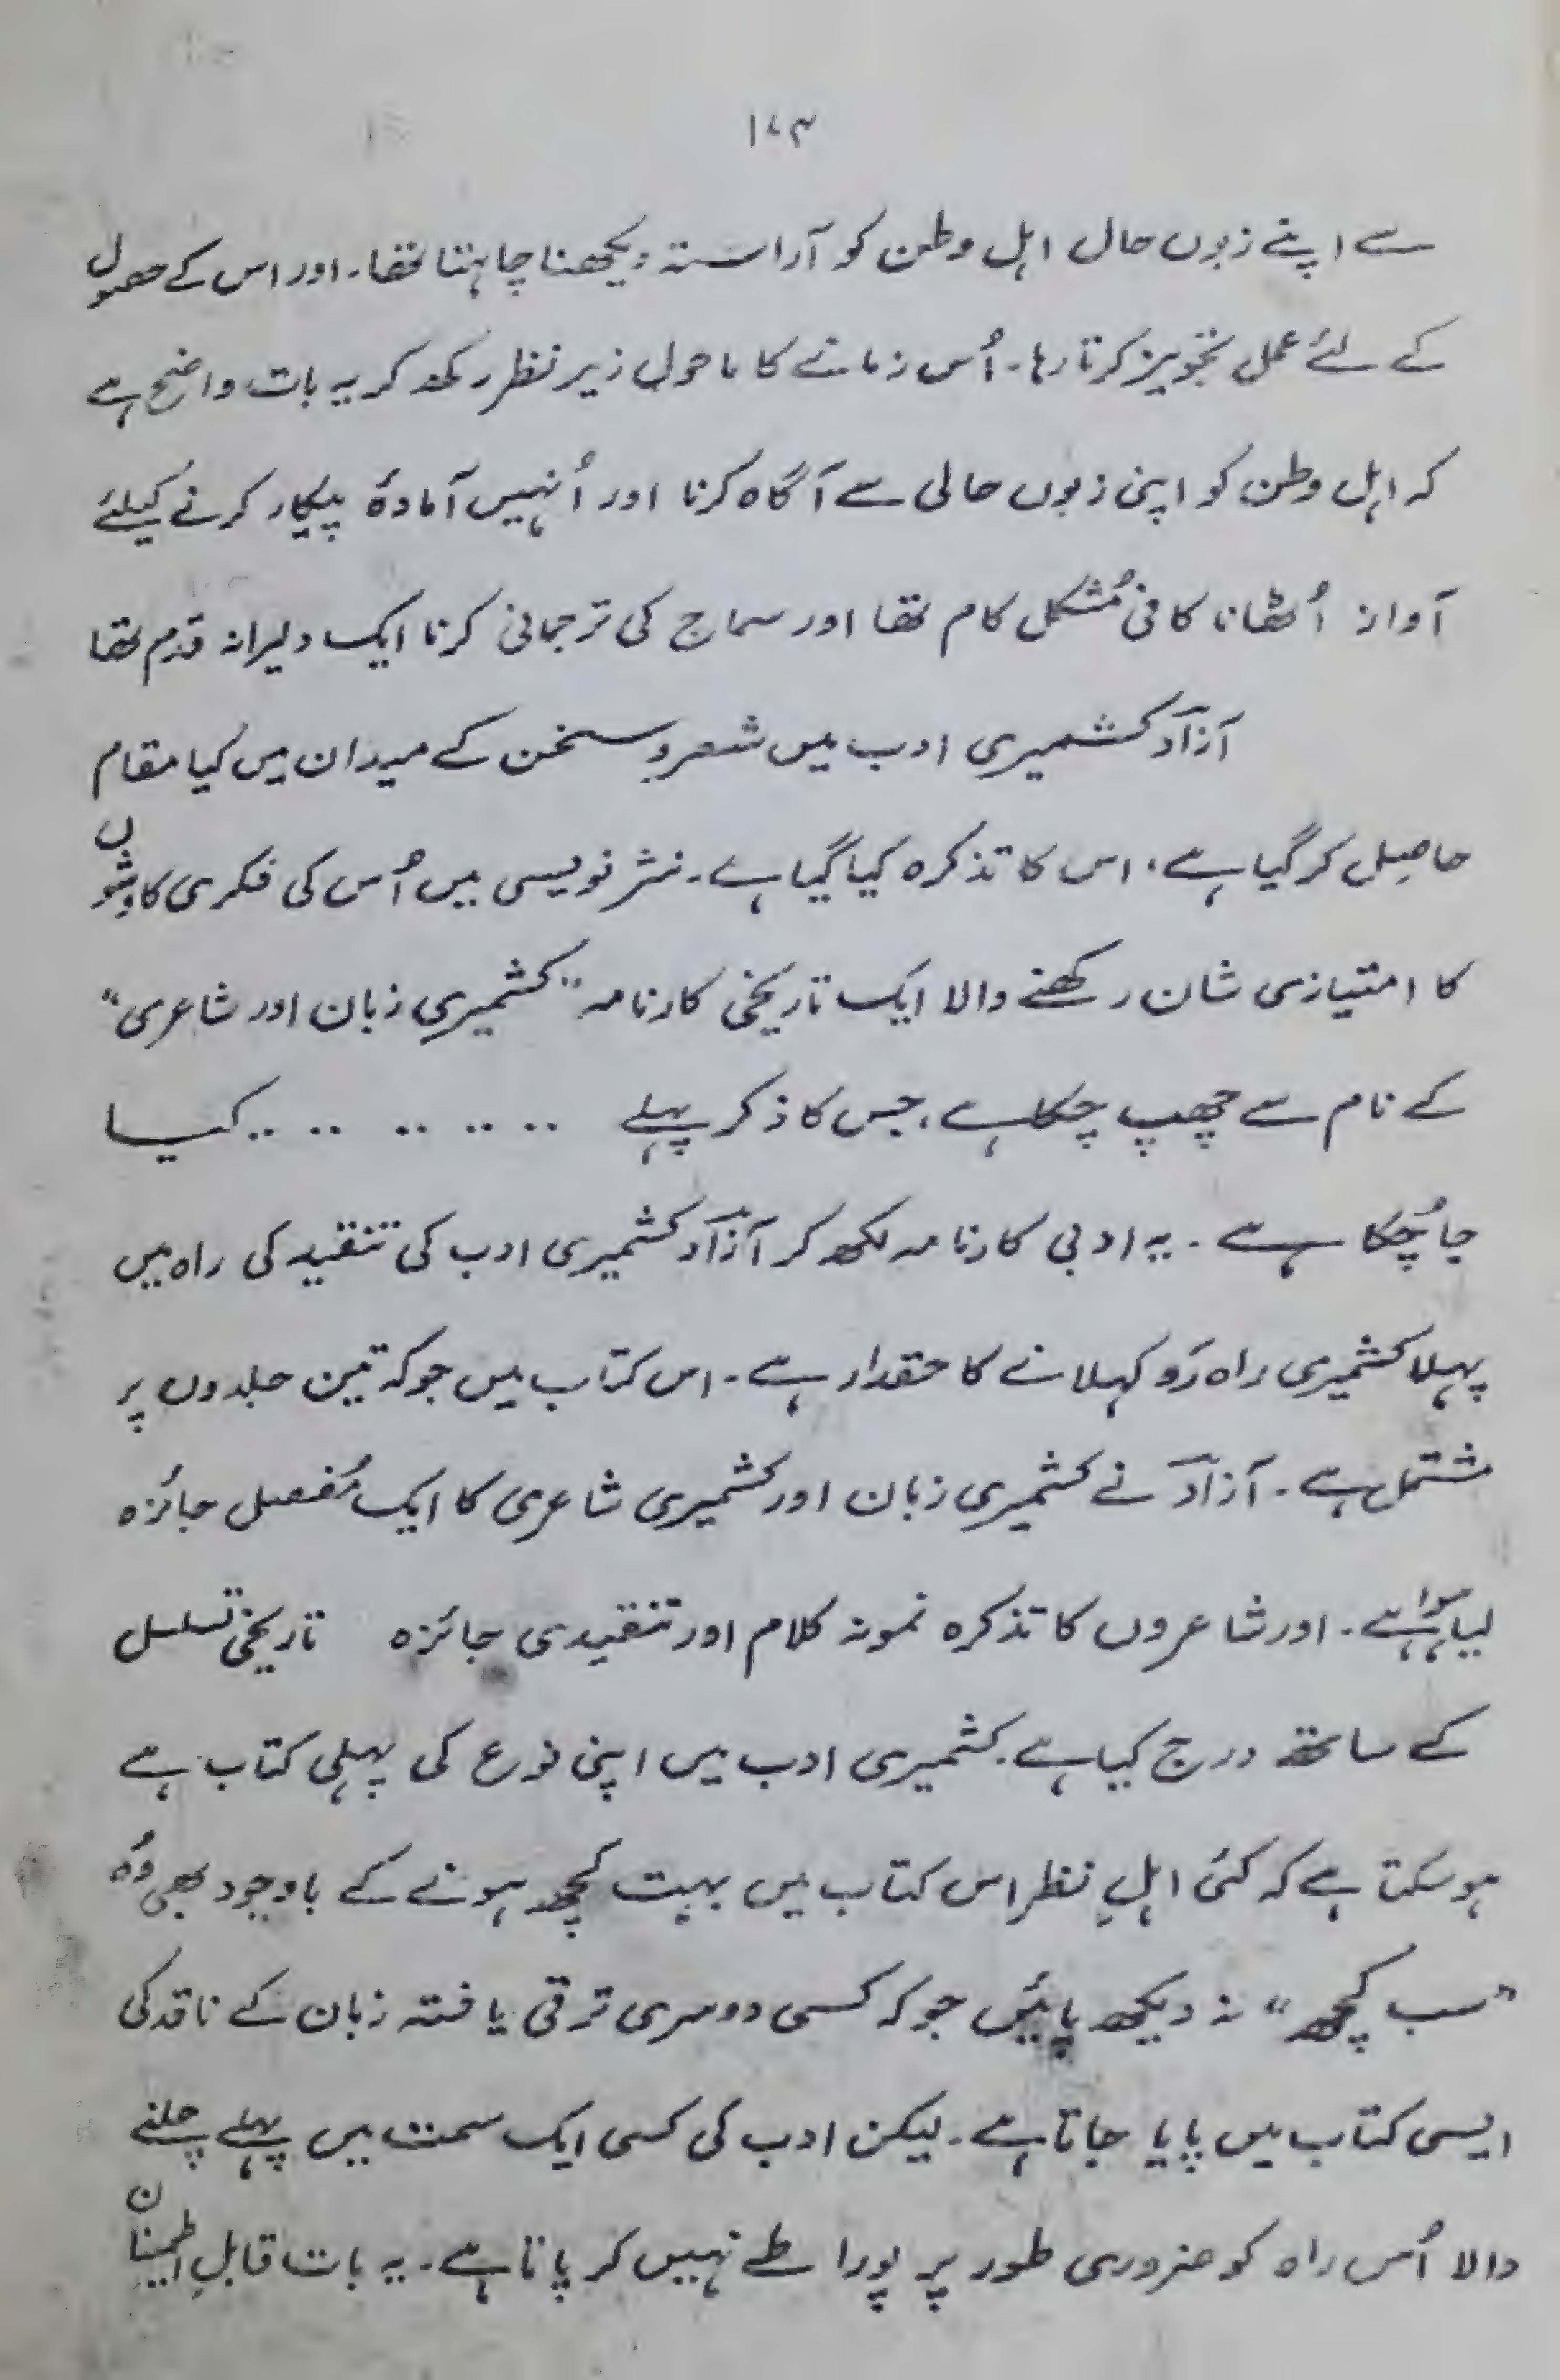 ۱۷۳
سے اپنے زبوں حال اہل وطن کو آراستہ دیکھنا چاہتا تھا۔ اور اس کے حصول
کے لئے عمل تجویز کرتا رہا۔ اُس زمانے کا ماحول زیر نظر رکھ کر یہ بات واضح ہے
کہ اہل وطن کو اپنی زبوں حالی سے آگاہ کرنا اور اُنہیں آمادۂ پیکار کرنے کیلئے
آواز اُٹھانا کافی مُشکل کام تھا اور سماج کی ترجمانی کرنا ایک دلیرانہ قدم تھا
آزادؔ کشمیری ادب میں شعر و سخن کے میدان میں کیا مقام
حاصِل کر گیا ہے، اس کا تذکرہ کیا گیا ہے۔ نثر نویسی میں اُس کی فکری کاوِشوں
کا امتیازی شان رکھنے والا ایک تاریخی کارنامہ "کشمیری زبان اور شاعری"
کے نام سے چھپ چکا ہے، جس کا ذکر پہلے .. .. .. .. .. کیا
جا چُکا ہے۔ یہ ادبی کارنامہ لکھ کر آزادؔ کشمیری ادب کی تنقید کی راہ میں
پہلا کشمیری راہ رَو کہلانے کا حقدار ہے۔ اس کتاب میں جو کہ تین جلدوں پر
مشتمل ہے۔ آزادؔ نے کشمیری زبان اور کشمیری شاعری کا ایک مُفصل جائزہ
لیا ہوا ہے۔ اور شاعروں کا تذکرہ نمونہ کلام اور تنقیدی جائزہ تاریخی تسلسل
کے ساتھ درج کیا ہے۔ کشمیری ادب میں اپنی نوع کی پہلی کتاب ہے
ہو سکتا ہے کہ کئی اہلِ نظر اس کتاب میں بہت کچھ ہونے کے باوجود بھی وُہ
"سب کچھ" نہ دیکھ پائیں جو کہ کسی دوسری ترقی یافتہ زبان کے ناقد کی
ایسی کتاب میں پایا جاتا ہے۔ لیکن ادب کی کسی ایک سمت میں پہلے چلنے
والا اُس راہ کو ضروری طور پر پورا طے نہیں کر پاتا ہے۔ یہ بات قابلِ اطمینان